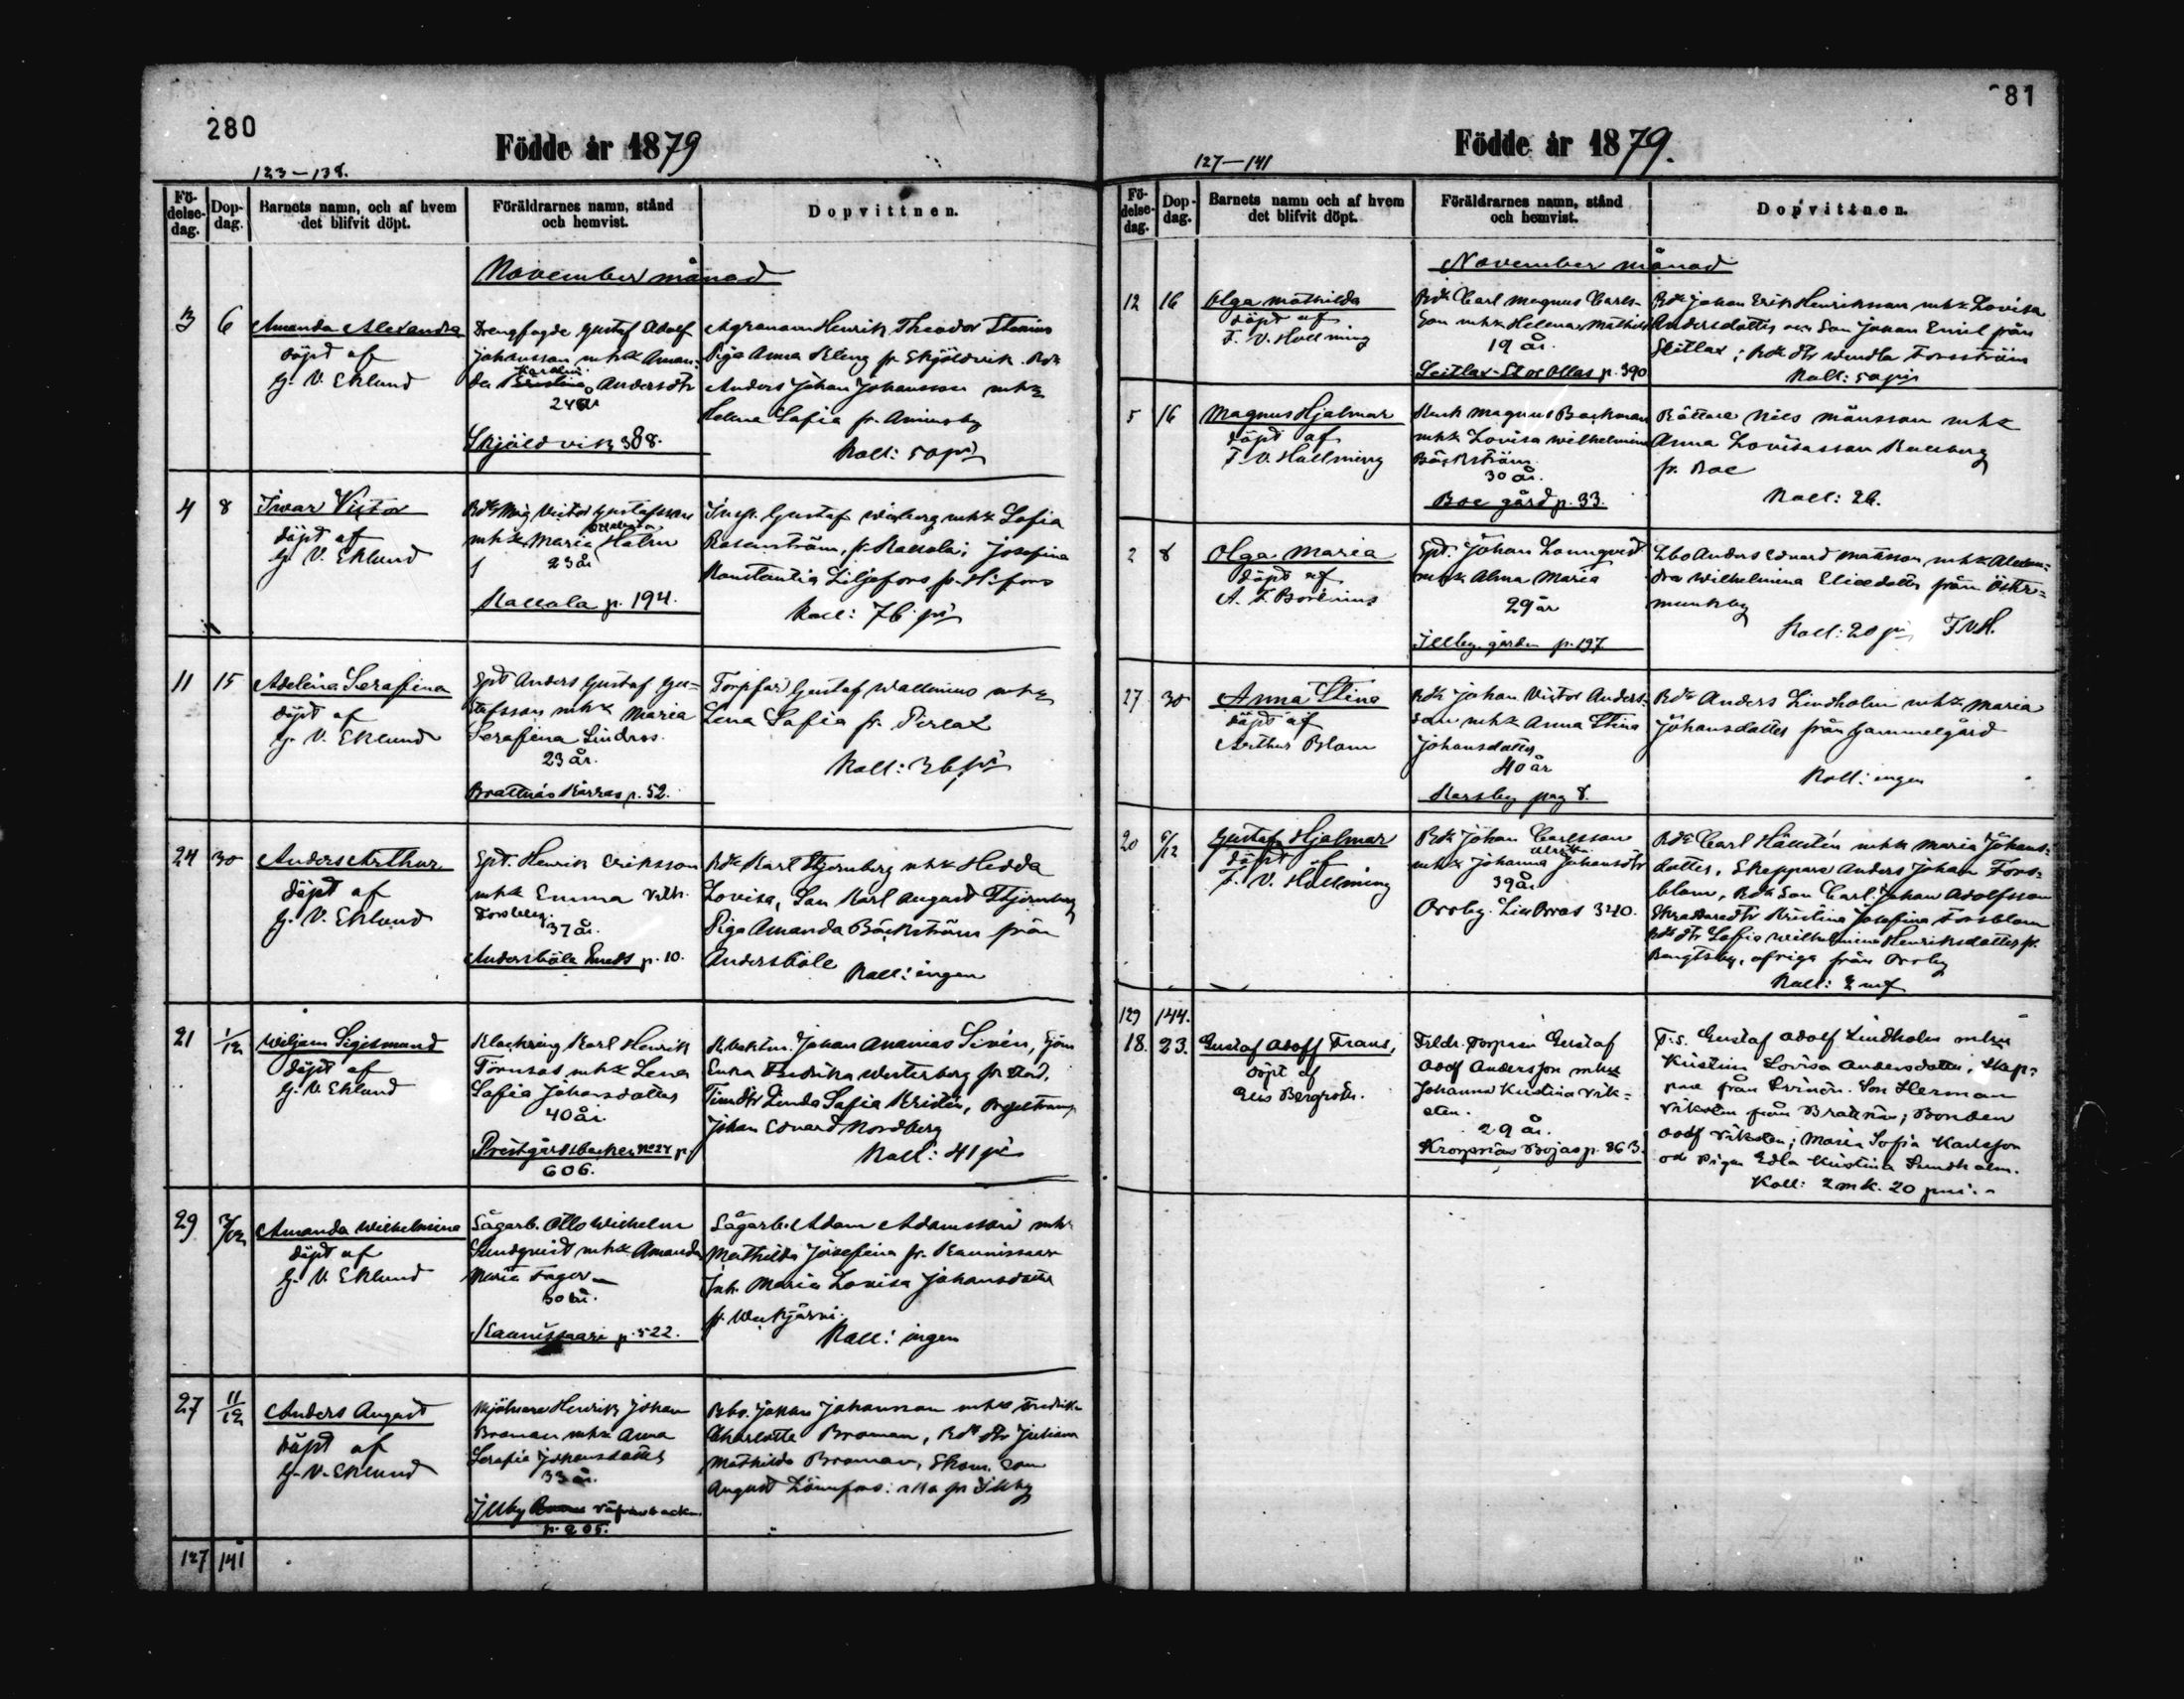 280
Födde år 1879
123–138.
Fö-
delse-
dag.
Dop-
dag.
Barnets namn, och af hvem
det blifvit döpt.
Föräldrarnes namn, stånd
och hemvist.
Dopvittnen.
November månad
3 6
Amanda Alexandra
döpt af
G. V. Eklund
Drengfogde Gustaf Adolf
Johansson mhu Aman-
da Karolin Andersdtr
24 år
Skjöldvik 388.
Agronom Henrik Theodor
Piga Anna Kling fr Skjöldvik.
Anders Johan Johansson mhu
Helena Sofia fr.
Koll: 50 pi
4 8
Iwar Victor
döpt af
G. V. Eklund
Victor Gustafsson
mhu Maria Holm
23 år
p. 194.
Insp. Gustaf mhu Sofia
Rosenström, Josefina
Konstantia Liljefors fr. H:fors
Koll: 76 pi
11 15
Adelina Serafina
döpt af
G. V. Eklund
Anders Gustaf Gu-
stafsson mhu Maria
Serafina Lindros.
23 år.
Brattnäs Kärras p. 52.
Gustaf Wallenius mhu
Lena Sofia fr. Pirlax
Koll: 36 pi
24 30
Anders Arthur
döpt af
G. V. Eklund
Henrik Eriksson
mhu Emma Vilh.
Forsberg.
37 år.
Andersböle p. 10.
Karl Stjernberg mhu Hedda
Lovisa, Son Karl August Stjernberg
Piga Amanda Bäckström från
Andersböle
Koll: ingen
21 1/12
Wiljam Sigismund
döpt af
G. V. Eklund
Karl Henrik
Törnroos mhu Lena
Sofia Johansdotter
40 år
Prestgårdsbacken No 24 p.
606.
Johan Ananias Sivén,
Fredrika Westerberg fr Stad,
Linda Sofia
Johan Edvard Nordberg
Koll: 41 pi
29
Amanda Wilhelmina
döpt af
G. V. Eklund
Sågarb. Otto Wilhelm
Sundqvist mhu Amanda
Maria Fager
30 år.
Kaunissaari p. 522.
Sågarb. Adam Adamsson mhu
Mathilda Josefina fr. Kaunissaari
Inh. Maria Lovisa Johansdotter
Koll: ingen
27 11/12
Anders August
döpt af
G. V. Eklund
Mjölnare Henrik Johan
Broman mhu Anna
Serafia Johansdotter
33 år.
Illby
p. 205.
Johan Johansson mhu Fredrika
Charlotta Broman, dtr Juliana
Mathilda Broman, son
August Lönnfors: alla fr Illby
127 141
81
Födde år 1879.
127–141
Fö-
delse-
dag.
Dop-
dag.
Barnets namn och af hvem
det blifvit döpt.
Föräldrarnes namn, stånd
och hemvist.
Dopvittnen.
November månad
12 16
Olga Mathilda
döpt af
F. V. Hollming
Carl Magnus Carls-
son mhu Helena Mathild
19 år.
Seitlax p. 390
Johan Erik Henriksson mhu Lovisa
Andersdotter och Son Johan Emil från
Seitlax; dtr Wendla Forsström
Koll: 50 pi
5 16
Magnus Hjalmar
döpt af
F. V. Hollming
Magnus Backman
mhu Lovisa Wilhelmina
Bäckström
30 år.
Boe gård p. 33.
Rättare Nils Månsson mhu
Anna
fr. Boe
Koll: 26.
2 8
Olga Maria
döpt af
A. F. Borenius
Johan Lönnqvist
mhu Alma Maria
29 år
Illby gården p. 197
Anders Edvard Mattsson mhu Alexan-
dra Wilhelmina Eliedotter från Öster-
munkby
Koll: 20 pi F V H.
27 30
Anna Stina
döpt af
Arthur Blom
Johan Victor Anders-
son mhu Anna Stina
Johansdotter
40 år
Karsby pag 8.
Anders Lindholm mhu Maria
Johansdotter från Gammelgård
Koll: ingen
20 6/12
Gustaf Hjalmar
döpt af
F. V. Hollming
Johan Carlsson
mhu Johanna Ulrik Johansdtr
39 år
Orrby. 340.
Carl Hällstén mhu Maria Johans-
dotter, Skeppare Anders Johan Fors-
blom, Son Carl Johan Adolfsson
Kristina Josefina Forsblom
dtr Sofia Wilhelmina Henriksdotter fr.
Bengtsby, öfriga från Orrby
Koll: 2 mf
129 144.
18. 23.
Gustaf Adolf Frans,
döpt af
Elis Bergroth.
Torpare Gustaf
Adolf Andersson mhu
Johanna Kristina Vik-
sten.
29 år.
Kroppnäs Böjas p. 863.
Gustaf Adolf Lindholm mhu
Kristina Lovisa Andersdotter,
från Svinö. Son Herman
Viksten från Brattnäs; Bonden
Adolf Viksten; Maria Sofia Karlsson
och Pigan Edla Kristina Sundholm.
Koll: 2 mk. 20 pni.